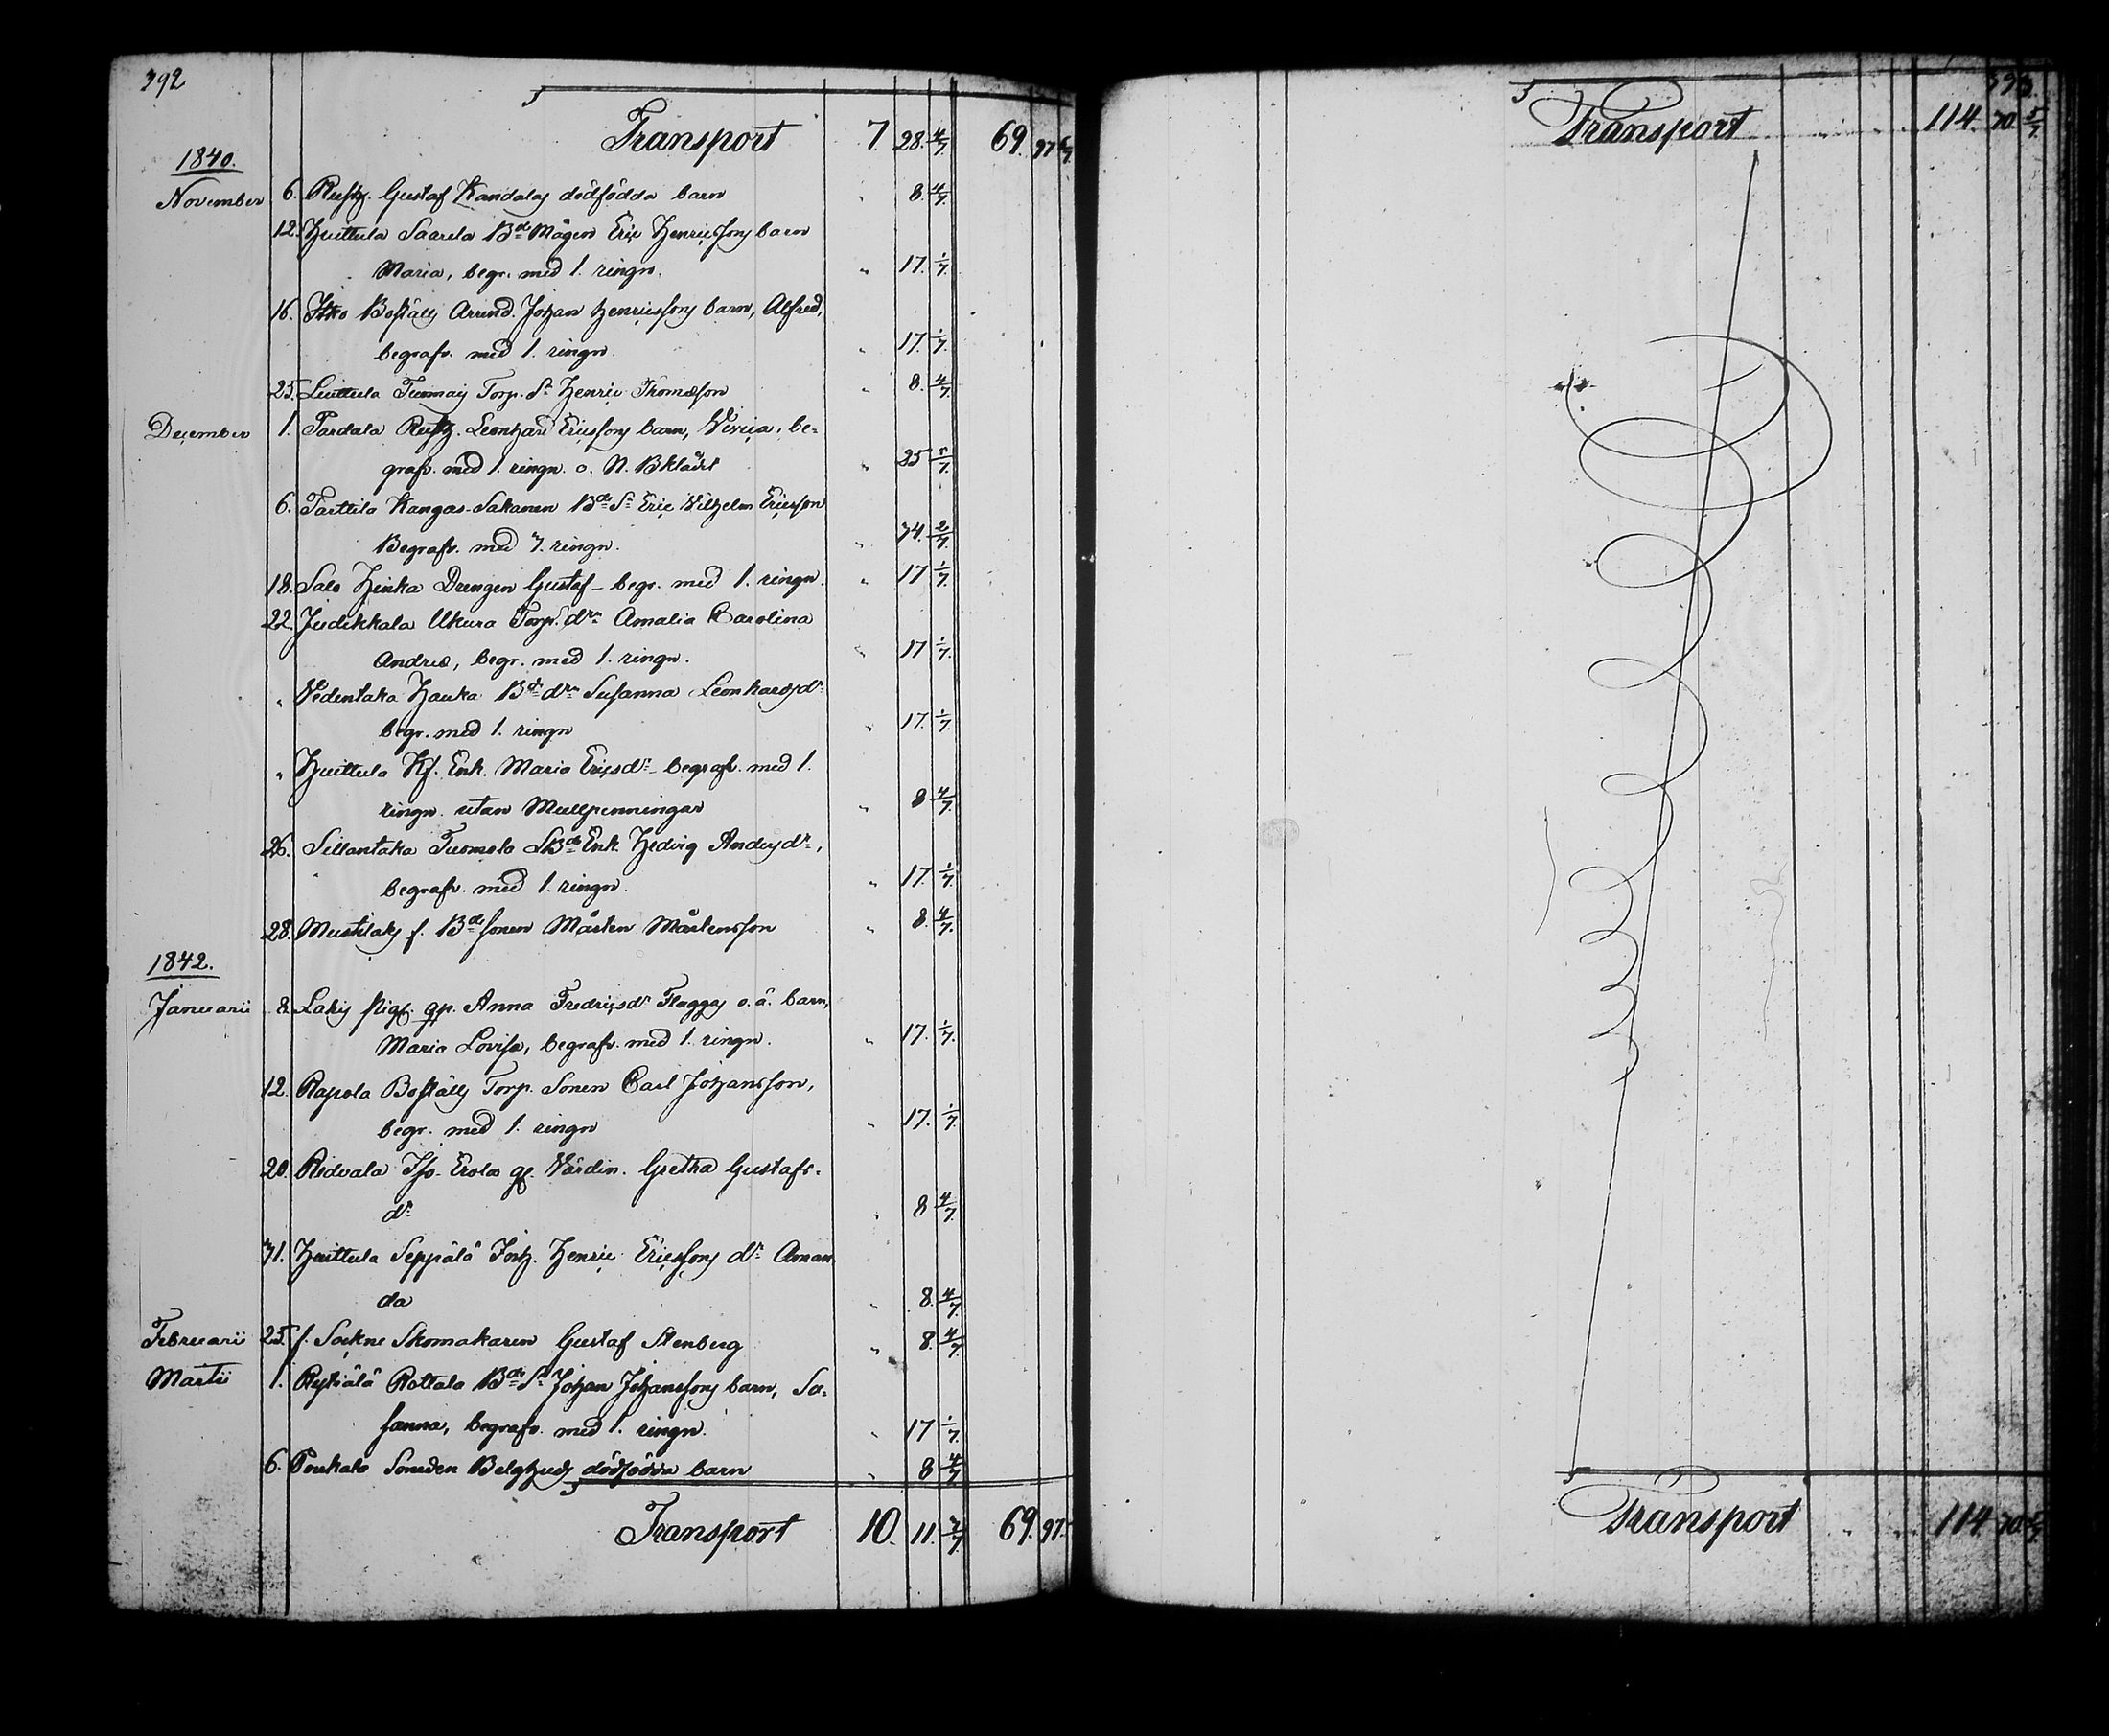 392
Transport 7 28. 4/7. 69. 97 6/7.
1840.
November 6. Rusth. Gustaf Kandalas dödfödda barn " 8. 4/7.
12. Huittula Saarela Bde Mågen Eric Henricssons barn
Maria, begr. med 1. ringn. " 17. 1/7.
16. Itko Boställs Arrend. Johan Henricssons barn, Alfred,
begrafv. med 1. ringn. " 17. 1/7.
25. Luttula Tuomais Torp. Sn Henric Thomasson " 8. 4/7.
December 1. Tardala Rusth. Leonhard Ericssons barn, Vivica, be-
grafv. med 1. ringn. o. N. Bklädt " 25 5/7.
6. Parttila Kangas-Sakanen Bde Sn Eric Vilhelm Ericsson
Begrafv. med 3. ringn. " 34. 2/7.
18. Salo Heikka Drengen Gustaf - begr. med 1. ringn. " 17 1/7.
22. Judikkala Ukura Torp. drn Amalia Carolina
Andrea, begr. med 1. ringn. " 17 1/7.
" Vedentaka Hauka Bde drn Susanna Leonhardsdr
begr. med 1. ringn " 17. 1/7.
" Huittula Kf. Enk. Maria Ericsdr - begrafv. med 1.
ringn. utan Mullpenningar " 8 4/7.
26. Sillantaka Tuomola Bde Enk. Hedvig Andersdr,
begrafv. med 1. ringn. " 17. 1/7.
28. Mustilaks f. Bde sonen Mårten Mårtensson " 8. 4/7.
1842.
Januarii 8. Lahis Pig. Anna Fredricsdr Flaggas o. ä. barn,
Maria Lovisa, begrafv. med 1. ringn. " 17. 1/7.
12. Rapola Boställs Torp. Sonen Carl Johansson,
begr. med 1. ringn " 17. 1/7.
20. Ridvala Iso-Erola gf. Värdin. Gretha Gustafs-
dr " 8 4/7.
31. Huittula Seppälä Henric Ericssons dr Aman-
da " 8. 4/7.
Februarii 25. f. Sockne Skomakaren Gustaf Stenberg " 8. 4/7.
Martii 1. Rytiälä Rottala Bde Sn Johan Johanssons barn, Su-
sanna, begrafv. med 1. ringn. " 17 1/7.
6. Poukalo Sonnden Belghuds dödfödda barn " 8 4/7.
Transport 10. 11. 3/7. 69. 97.
393.
Transport 114. 70. 5/7.
Transport 114. 70. 5/7.